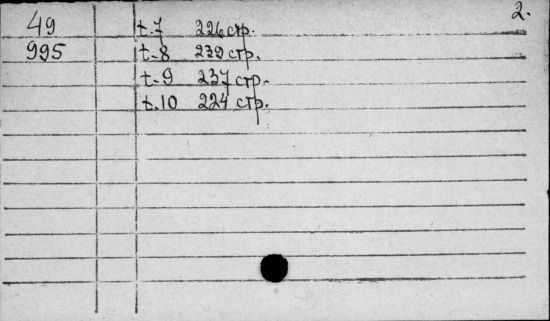 2.
49 t.7 226 стр.
995 t-8 239 стр.
t-9 237 стр.
t.10 224 стр.